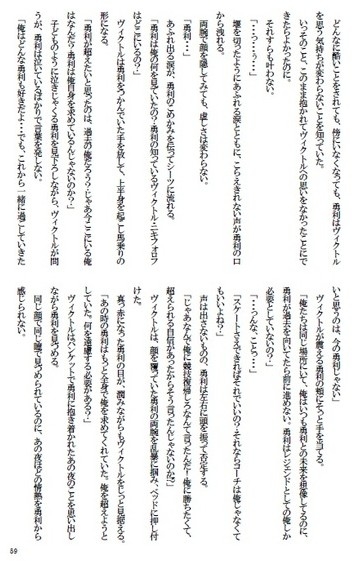 どんなに酷いことをされても、傍にいなくても、勇利はヴィクトル
を思う気持ちが変わらないことを知っていた。
いっそのこと、このまま抱かれてヴィクトルへの思いをなかったことにで
きたらよかったのに。
それすらも叶わない。
「・・・う・・・っ」
堰を切ったようにあふれる涙とともに、こらえきれない声が勇利の口
から洩れる。
両腕で顔を隠してみても、虚しさは変わらない。
「勇利・・・」
あふれ出る涙が、勇利のこめかみを伝ってシーツに流れる。
「勇利は俺の何を見ていたの？勇利の知っているヴィクトル・ニキフォロフ
はどこにいるの？」
ヴィクトルは勇利をつかんでいた手を放して、上半身を起こし馬乗りの
形になる。
「勇利が超えたいと思ったのは、過去の俺だろう？じゃあ今ここにいる俺
はなんだ？勇利は俺自身を求めているんじゃないのか？」
子どものように泣きじゃくる勇利を見下ろしながら、ヴィクトルが問
うが、勇利は泣いているばかりで言葉を発しない。
「俺はどんな勇利も好きだよ・・・でも、これから一緒に過ごしていきた
いと思うのは、今の勇利じゃない」
ヴィクトルが震える勇利の頬にそっと手を当てる。
「俺たちは同じ場所にいて、俺はいつも勇利との未来を想像してるのに、
勇利が過去を向いてたら前に進めない。勇利はレジェンドとしての俺しか
必要としていないの？」
「・・・っんな、こと・・・」
「スケートさえできればそれでいいの？それならコーチは俺じゃなくて
もいいよね？」
声は出さないものの、勇利は左右に頭を振って否定する。
「じゃあなんで俺に競技復帰しろなんて言ったんだ！俺に勝ちたくて、
超えられる自信があったからそう言ったんじゃないのか？」
ヴィクトルは、顔を覆っていた勇利の両腕を乱暴に掴み、ベッドに押し付
けた。
真っ赤になった勇利の目が、潤みながらもヴィクトルをじっと見据える。
「あの時の勇利はもっと全身で俺を求めてくれていた。俺を超えようと
していた。何を遠慮する必要がある？」
ヴィクトルはバンケットで勇利に抱き着かれたあの夜のことを思い出し
ながら勇利を見つめる。
同じ顔で同じ瞳で見つめられているのに、あの夜ほどの情熱を勇利から
感じられない。
59